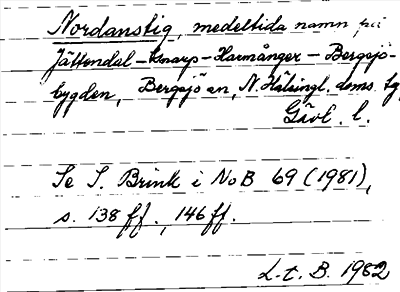 Nordanstig, medeltida namn på
Jättendal - Gnarp - Harmånger - Bergsjö-
bygden, Bergsjö sn, N. Hälsingl. doms. tg,
Gävl. l.
Se S. Brink i NoB 69 (1981),
s. 138 ff., 146 ff.
L.t. B. 1982